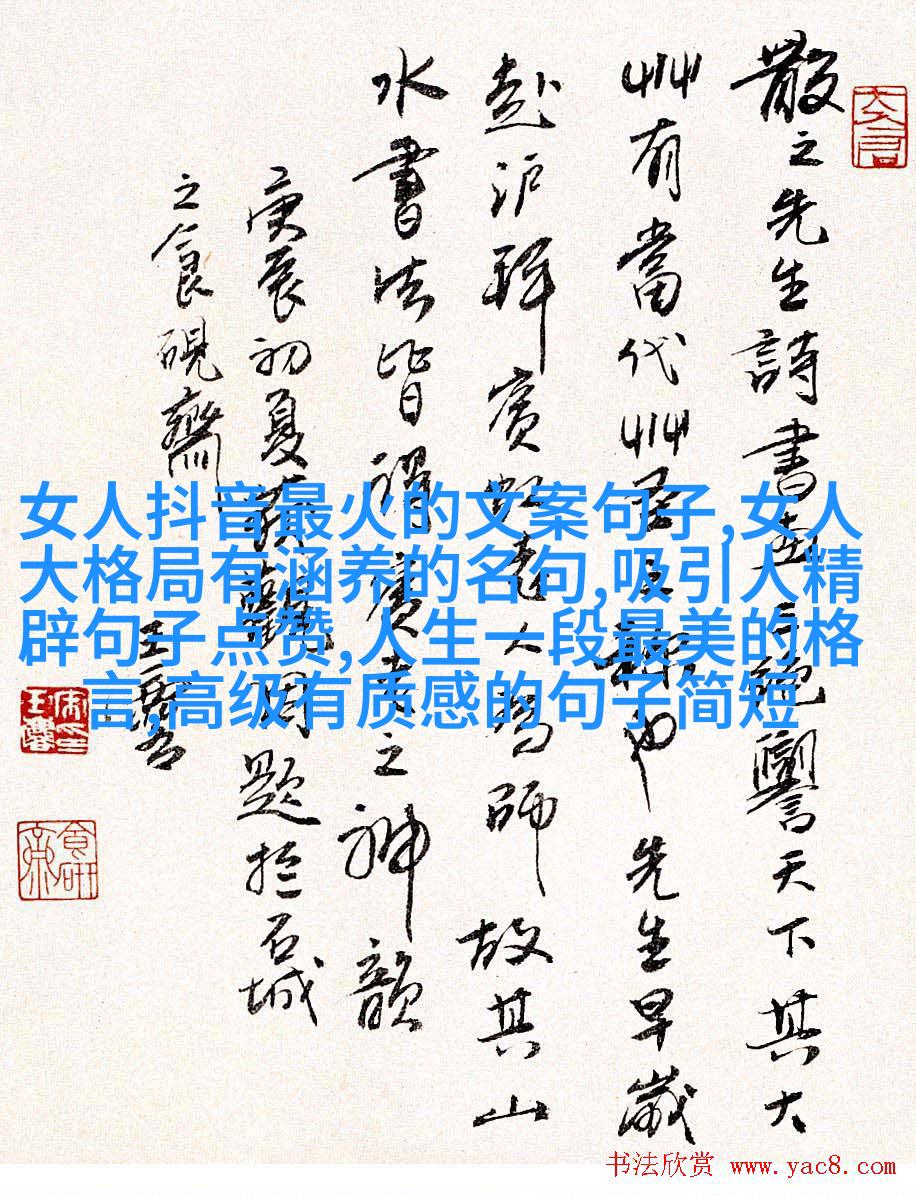 散之先生詩書畫三絕譽天下其大
艸有當代艸聖之稱也先生早歲
赴沪拜賓虹老人為師故其山
水書法皆得賓老之神韻
庚辰初夏觀因題於石城
之食硯齋
女人抖音最火的文案句子,女人
大格局有涵养的名句,吸引人精
辟句子点赞,人生一段最美的格
言,高级有质感的句子简短
书法欣赏 www.yac8.com